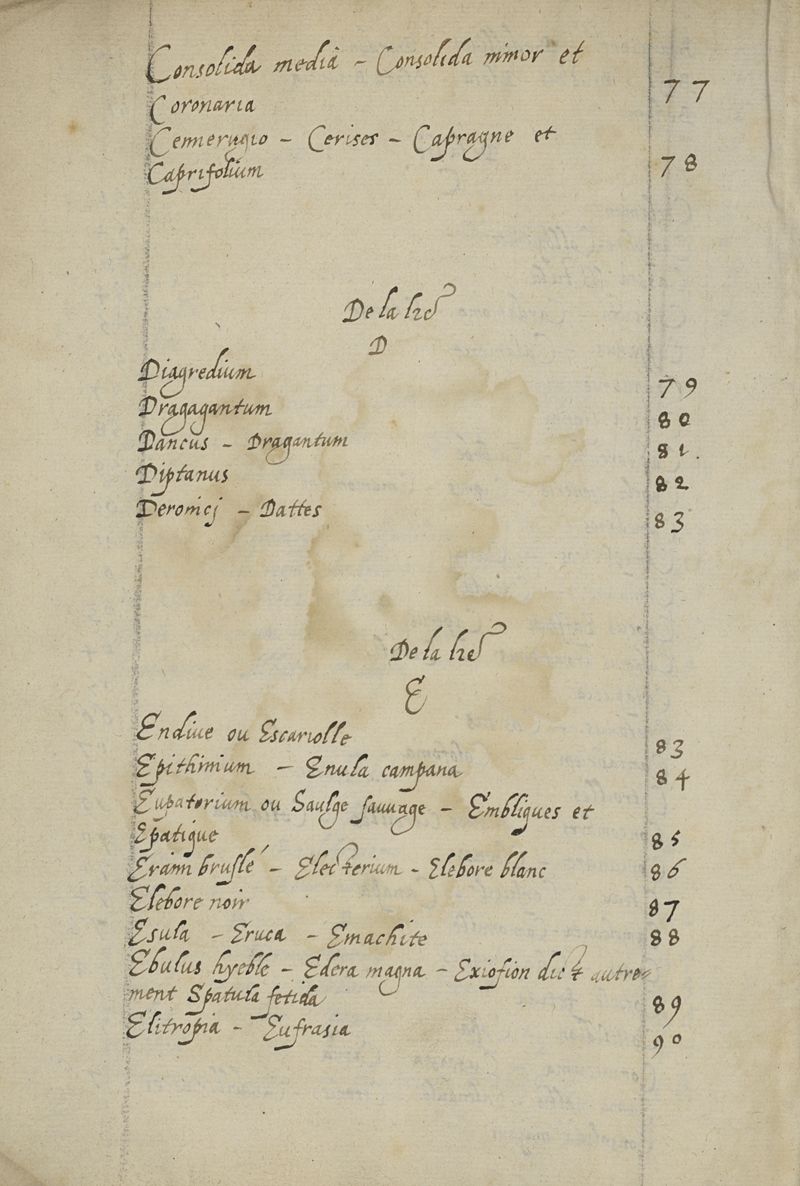 Consolida media - Consolida minor et
Coronaria 77
Cennerugio - Cerises - Capragne et
Caprifolium 78
De la lre
D
Diagredium 79
Dragagantum 80
Dancus - Dragantum 81.
Diptanus 82
Deronicj - Dattes 83
De la lre
E
Endiue ou Escariolle 83
Epithimium - Enula campana 84
Eupatorium ou Saulge sauuage - Embliques et
Epatique 85
Eraim bruslé - Electerium - Elebore blanc 86
Elebore noir 87
Esula - Eruca - Emachite 88
Ebulus hyeble - Edera magna - Exiofion dict autre-
ment Spatula fetida 89
Elitropia - Eufrasia 90